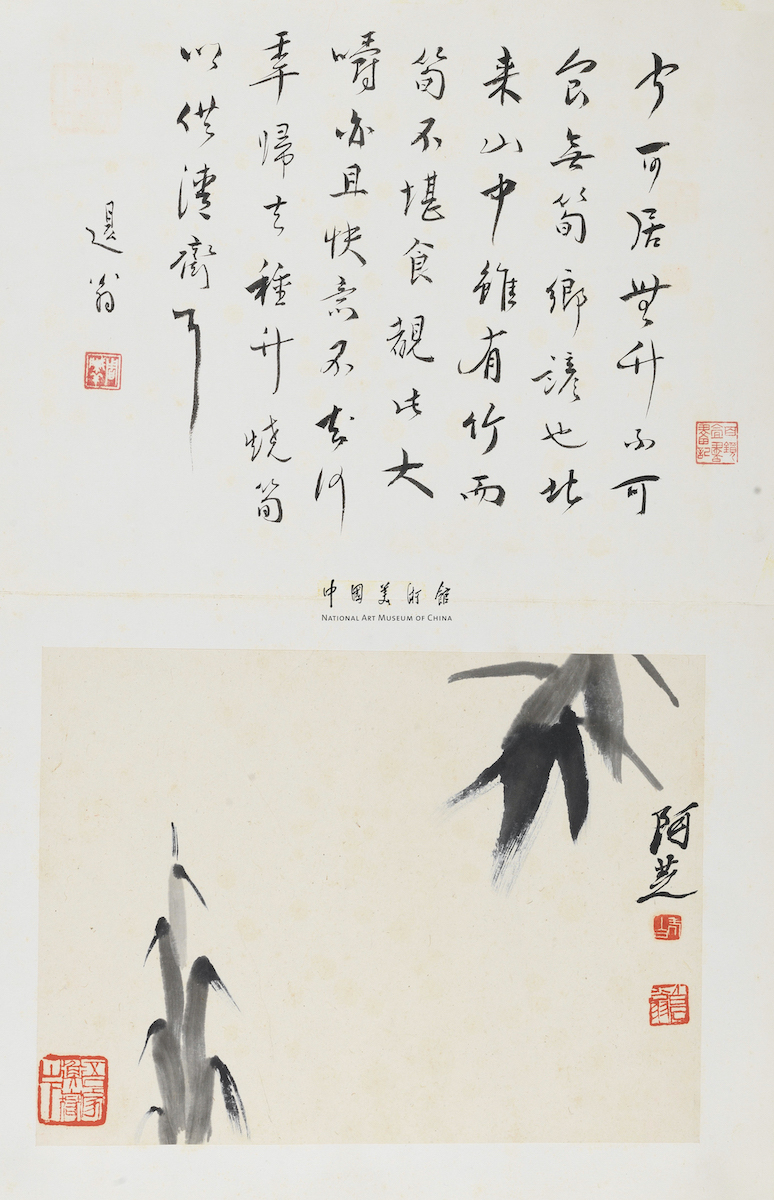 宁可居無竹不可
食無筍鄉諺也北
来山中雖有竹而
筍不堪食覩此大
嚼亦且快意不知何
年歸去種竹燒筍
以供清齋耳
退翁
中國美術館
NATIONAL ART MUSEUM OF CHINA
阿芝